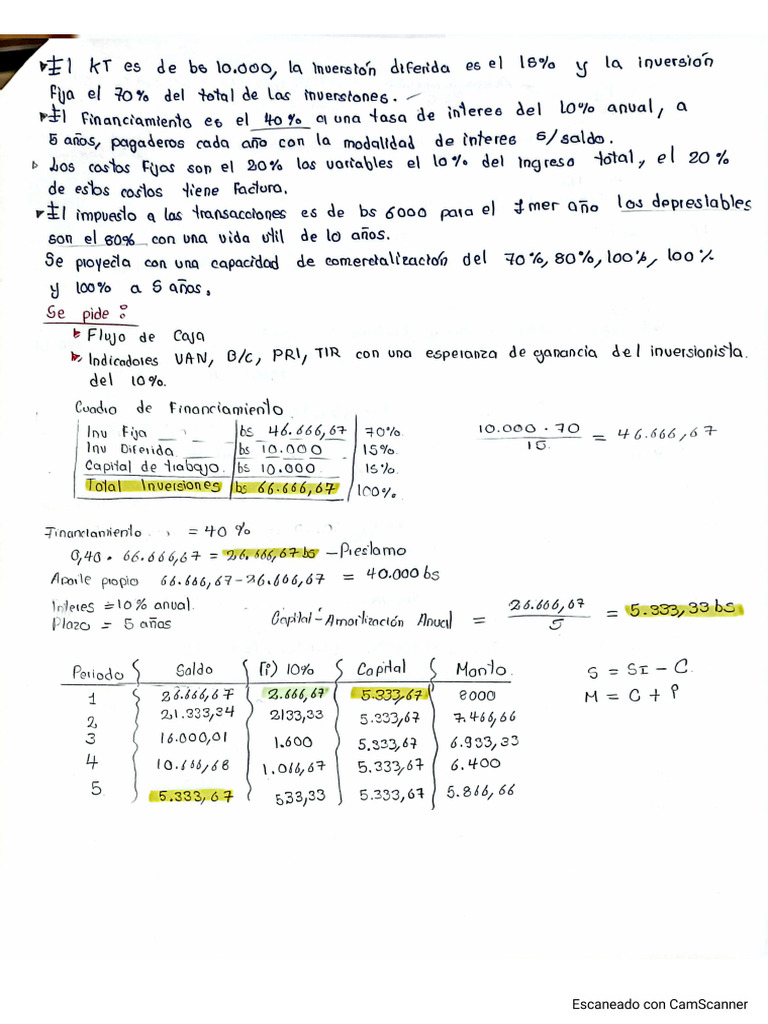 El KT es de bs 10.000, la inversión diferida es el 15% y la inversión
fija el 70% del total de las inversiones.
El financiamiento es el 40% a una tasa de interes del 10% anual, a
5 años, pagaderos cada año con la modalidad de interes s/saldo.
Los costos fijos son el 20% los variables el 10% del ingreso total, el 20%
de estos costos tiene factura.
El impuesto a las transacciones es de bs 6000 para el 1mer año los depresiables
son el 80% con una vida util de 10 años.
Se proyecta con una capacidad de comercialización del 70%, 80%, 100%, 100%
y 100% a 5 años.
Se pide:
Flujo de Caja
Indicadores VAN, B/C, PRI, TIR con una esperanza de ganancia del inversionista
del 10%.
Cuadro de Financiamiento
Inv Fija bs 46.666,67 70% 10.000 · 70 / 15 = 46.666,67
Inv Diferida bs 10.000 15%
Capital de trabajo bs 10.000 15%
Total Inversiones bs 66.666,67 100%
Financiamiento = 40%
0,40 · 66.666,67 = 26.666,67 bs - Prestamo
Aporte propio 66.666,67 - 26.666,67 = 40.000 bs
Interes = 10% anual.
Plazo = 5 años
Capital - Amortización Anual = 26.666,67 / 5 = 5.333,33 bs
Periodo Saldo (P) 10% Capital Monto S = SI - C
1 26.666,67 2.666,67 5.333,67 8000 M = C + P
2 21.333,34 2133,33 5.333,67 7.466,66
3 16.000,01 1.600 5.333,67 6.933,33
4 10.666,68 1.066,67 5.333,67 6.400
5 5.333,67 533,33 5.333,67 5.866,66
Escaneado con CamScanner